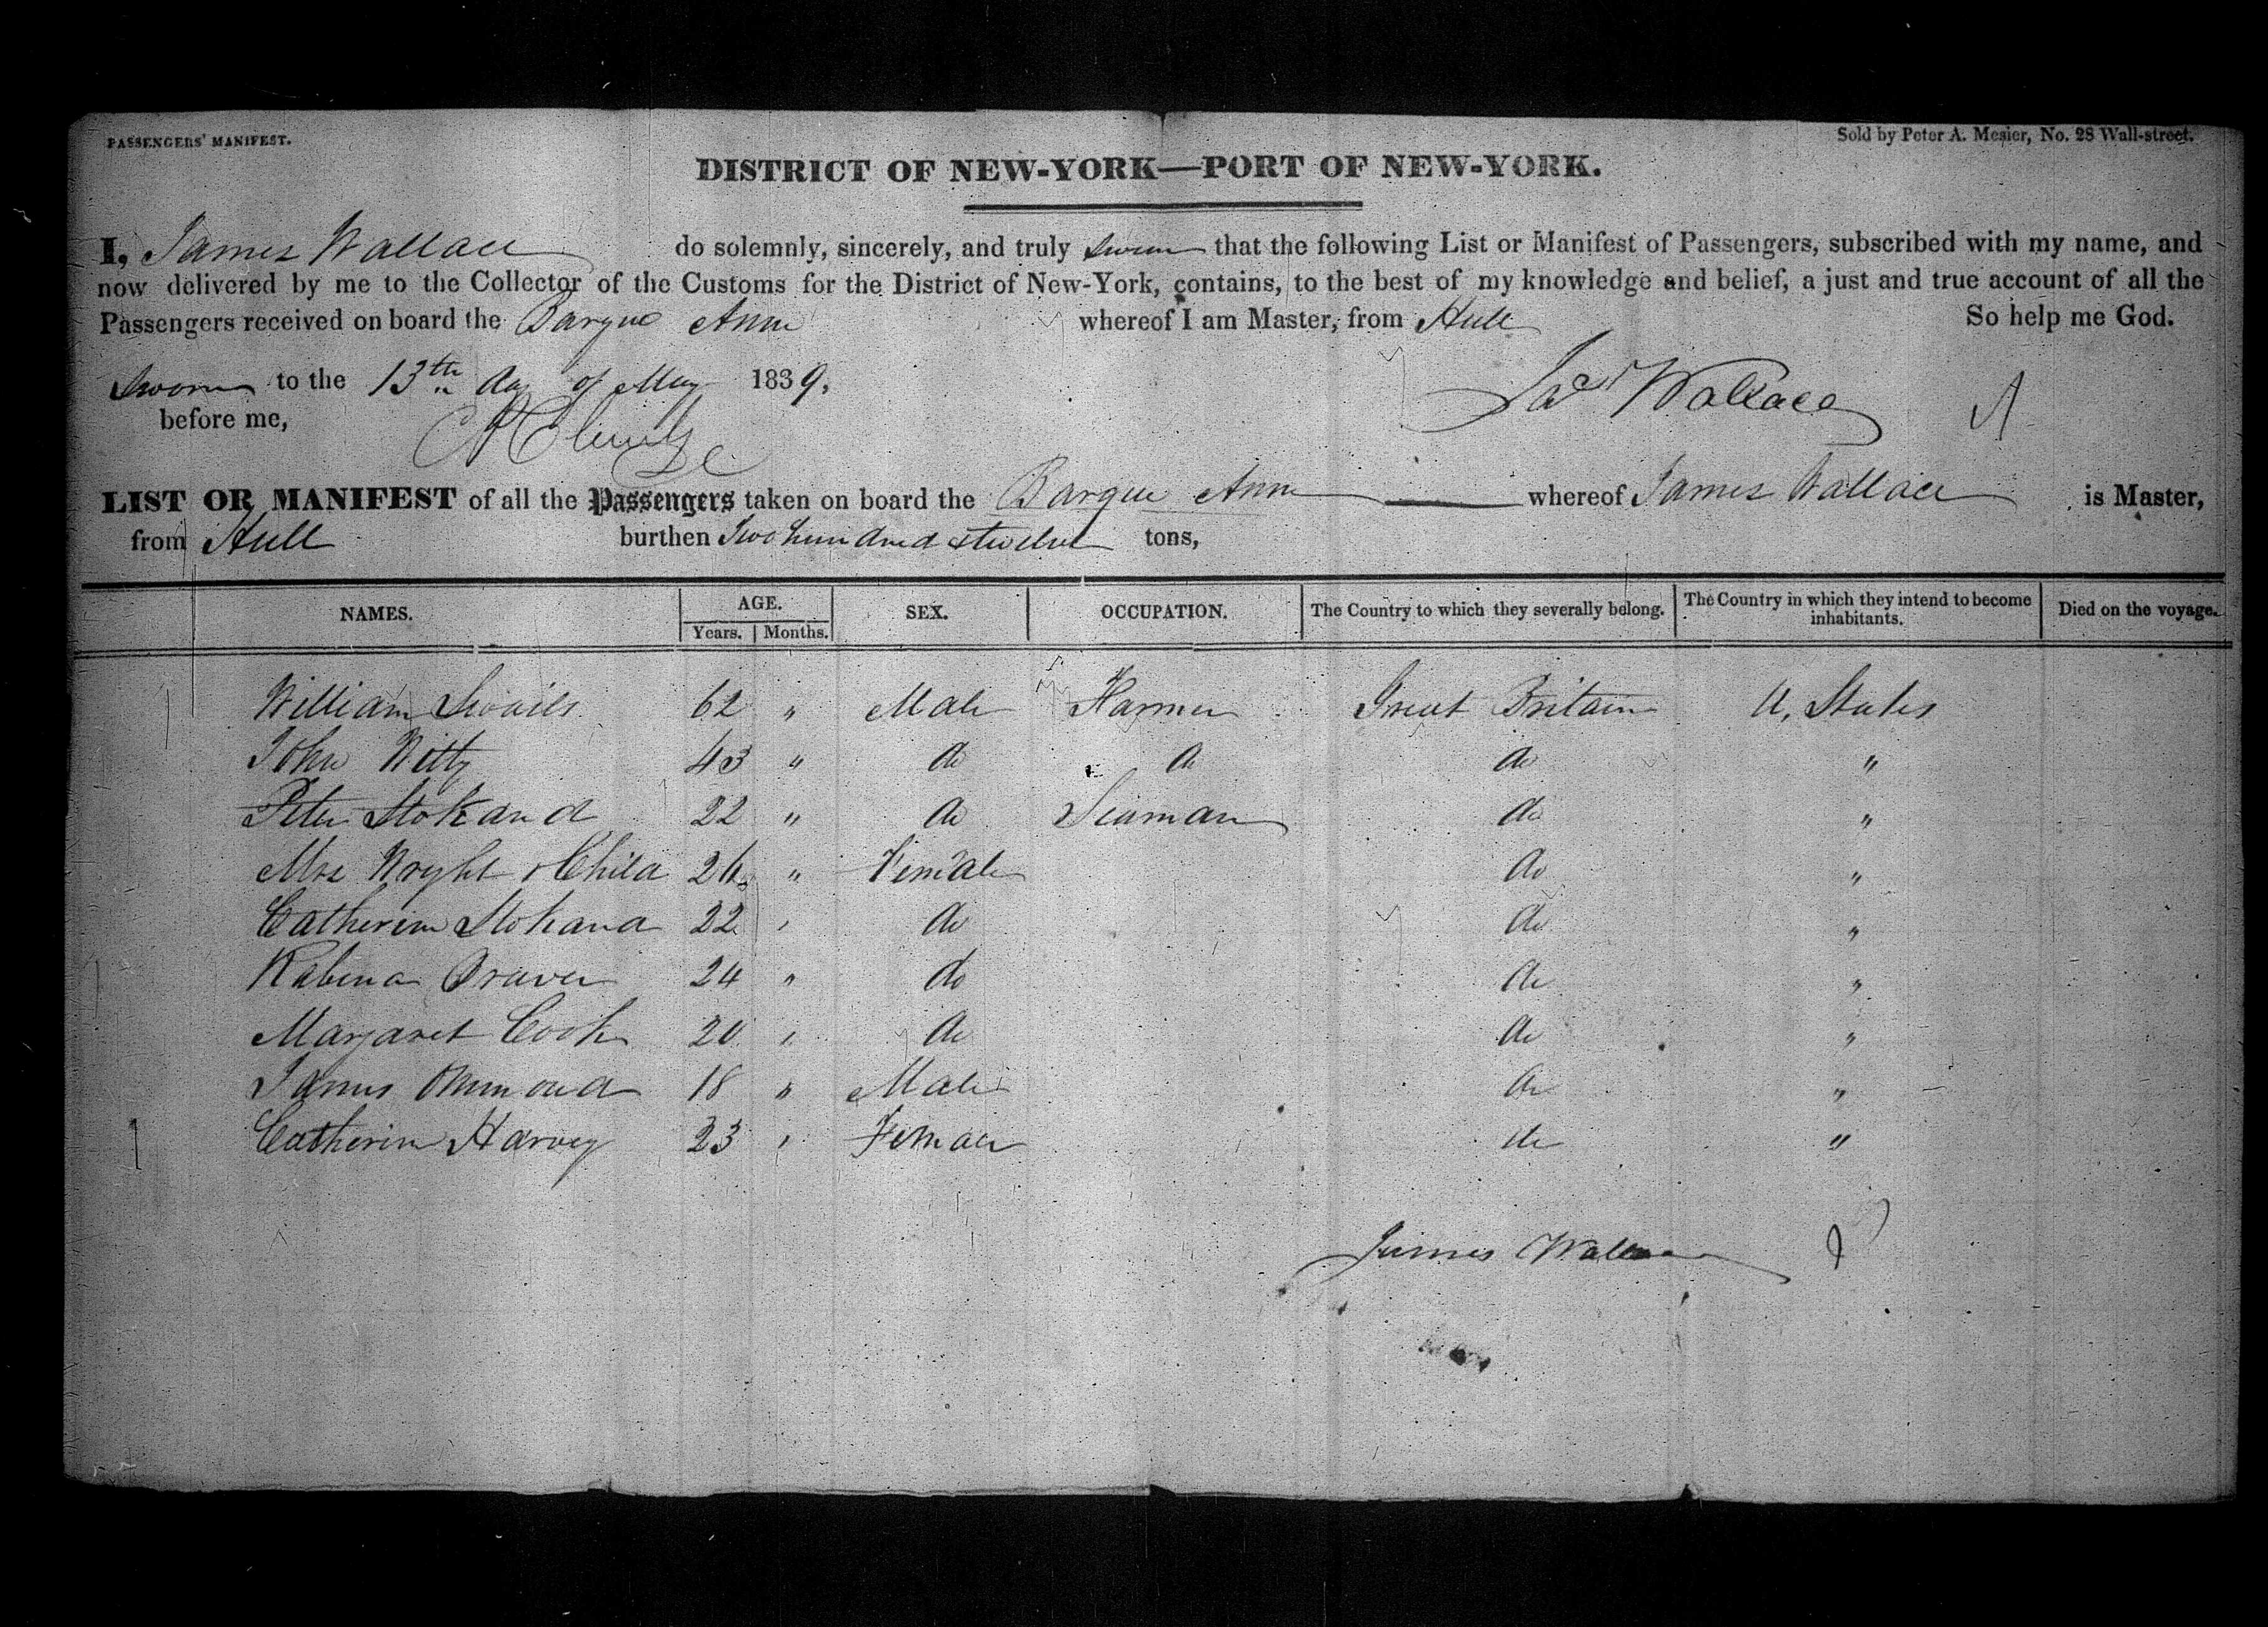 PASSENGERS' MANIFEST.
Sold by Peter A. Mesier, No. 28 Wall-street.
DISTRICT OF NEW-YORK—PORT OF NEW-YORK.
I, James Wallace do solemnly, sincerely, and truly swear that the following List or Manifest of Passengers, subscribed with my name, and
now delivered by me to the Collector of the Customs for the District of New-York, contains, to the best of my knowledge and belief, a just and true account of all the
Passengers received on board the Barque Ann whereof I am Master, from Hull So help me God.
Sworn to the 13th day of May 1839,
before me,
Jas Wallace
LIST OR MANIFEST of all the Passengers taken on board the Barque Ann whereof James Wallace is Master,
from Hull burthen Two hundred & twelve tons,
NAMES. AGE. Years. Months. SEX. OCCUPATION. The Country to which they severally belong. The Country in which they intend to become inhabitants. Died on the voyage.
William Swailes 62 " Male Farmer Great Britain U. States
John Witty 43 " do do do "
Peter Stokand 22 " do Seaman do "
Mrs Wryht & Child 26 " Female do "
Catherine Stokand 22 " do do "
24 " do do "
Margaret Cook 20 " do do "
James 18 " Male do "
Catherine Harvey 23 " Female do "
James Wallace